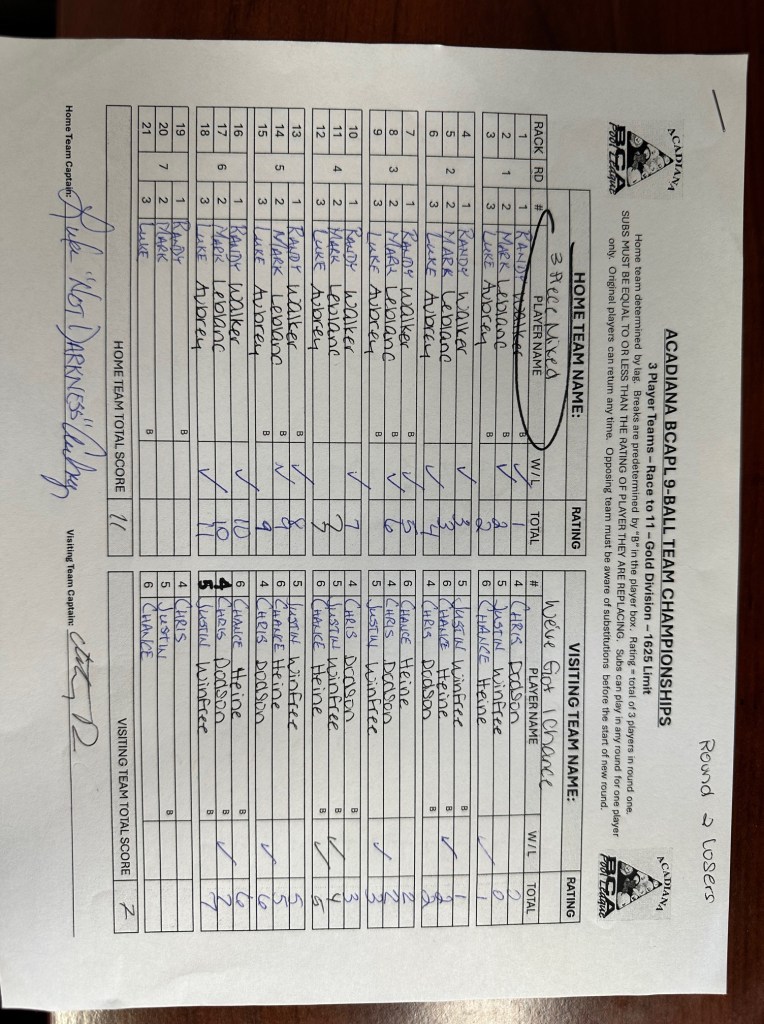 Round 2 Losers
ACADIANA BCA Pool League
ACADIANA BCAPL 9-BALL TEAM CHAMPIONSHIPS
ACADIANA BCA Pool League
3 Player Teams – Race to 11 – Gold Division – 1625 Limit
Home team determined by lag. Breaks are predetermined by "B" in the player box. Rating = total of 3 players in round one.
SUBS MUST BE EQUAL TO OR LESS THAN THE RATING OF PLAYER THEY ARE REPLACING. Subs can play in any round for one player
only. Original players can return any time. Opposing team must be aware of substitutions before the start of new round.
HOME TEAM NAME: RATING VISITING TEAM NAME: RATING
3 Piece Mixed We've Got 1 Chance
RACK RD # PLAYER NAME W/L TOTAL # PLAYER NAME W/L TOTAL
1 1 RANDY Walker B ✓ 1 4 CHRIS Dodson
2 1 2 MARK Leblanc B ✓ 2 5 JUSTIN Winfree 0
3 3 LUKE Aubrey B 2 6 CHANCE Heine ✓ 1
4 1 RANDY Walker ✓ 3 5 JUSTIN Winfree B 1
5 2 2 MARK Leblanc 3 6 CHANCE Heine B ✓ 2
6 3 LUKE Aubrey ✓ 4 4 CHRIS Dodson B 2
7 1 RANDY Walker B ✓ 5 6 CHANCE Heine 2
8 3 2 MARK Leblanc B ✓ 6 4 CHRIS Dodson 2
9 3 LUKE Aubrey B 5 JUSTIN Winfree ✓ 3
10 1 RANDY Walker ✓ 7 4 CHRIS Dodson 3
11 4 2 MARK Leblanc 7 5 JUSTIN Winfree B ✓ 4
12 3 LUKE Aubrey 7 6 CHANCE Heine B ✓ 5
13 1 RANDY Walker B ✓ 8 5 JUSTIN Winfree 5
14 5 2 MARK Leblanc B ✓ 9 6 CHANCE Heine 5
15 3 LUKE Aubrey B 9 4 CHRIS Dodson ✓ 6
16 1 RANDY Walker ✓ 10 6 CHANCE Heine B 6
17 6 2 MARK Leblanc 10 4 CHRIS Dodson B ✓ 7
18 3 LUKE Aubrey ✓ 11 5 JUSTIN Winfree B 7
19 1 RANDY B 4 CHRIS
20 7 2 MARK 5 JUSTIN B
21 3 LUKE B 6 CHANCE
HOME TEAM TOTAL SCORE 11 VISITING TEAM TOTAL SCORE 7
Home Team Captain: Luke "NOT DARKNESS" Aubrey Visiting Team Captain: